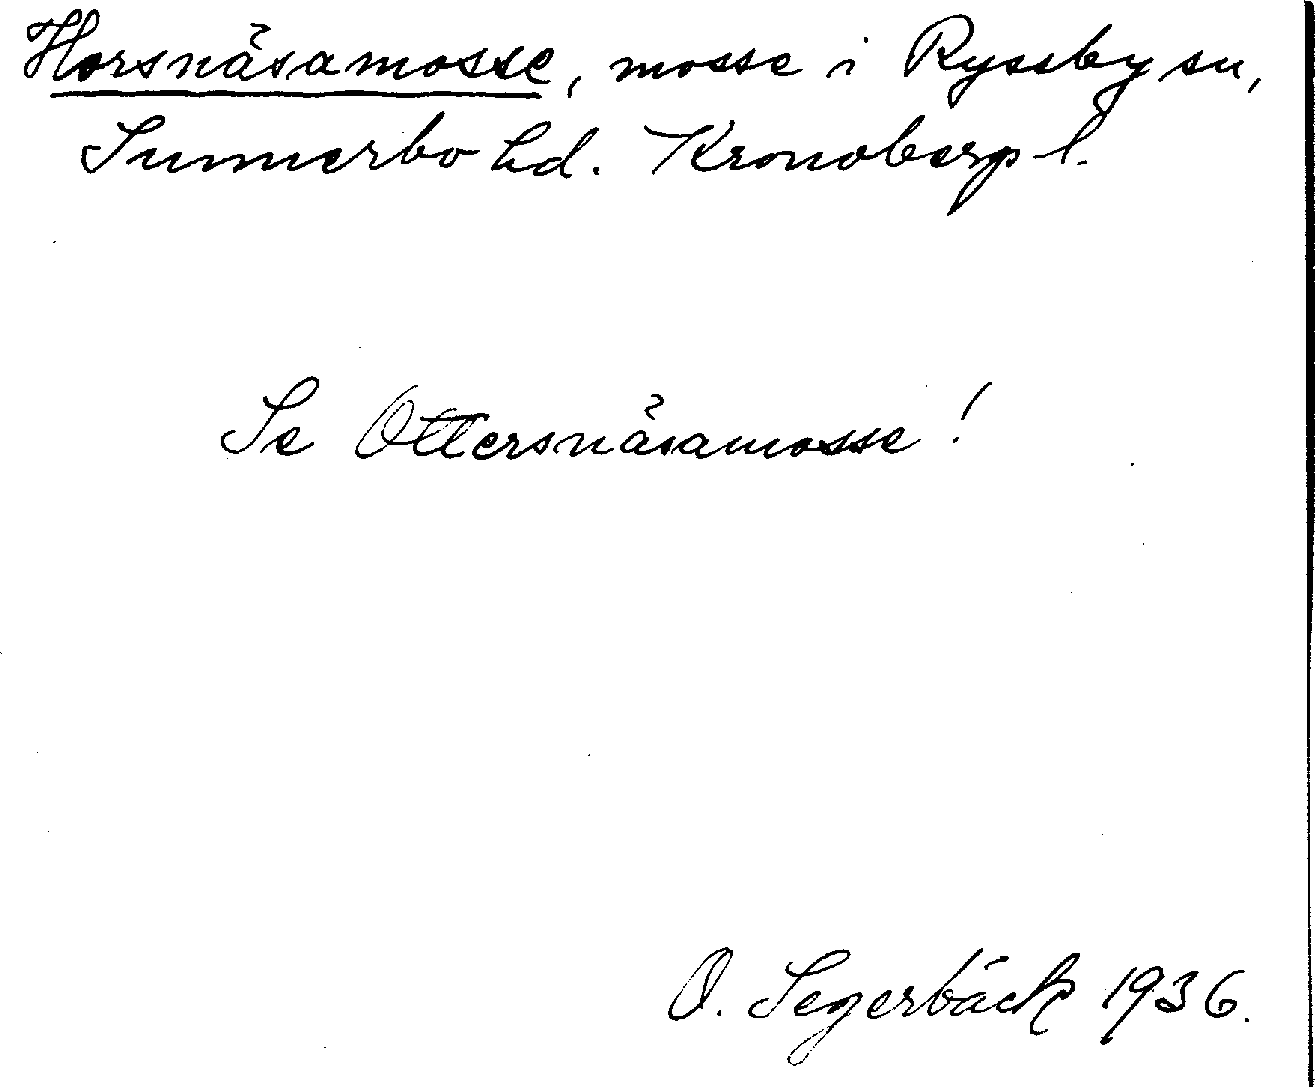 Horsnäsamosse, mosse i Ryssby sn,
Sunnerbo hd. Kronoberg l.
Se Ottersnäsamosse!
O. Segerbäck 1936.